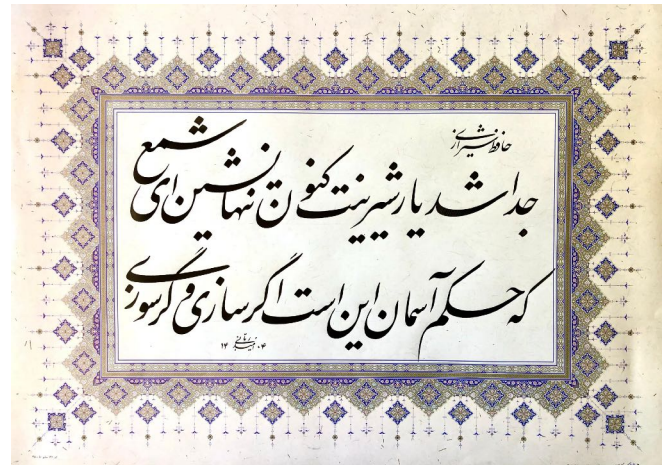 حافظ شیرازی
جدا شد یار شیرینت کنون تنها نشین ای شمع
که حکم آسمان این است اگر سازی و گر سوزی
۱۴۰۴